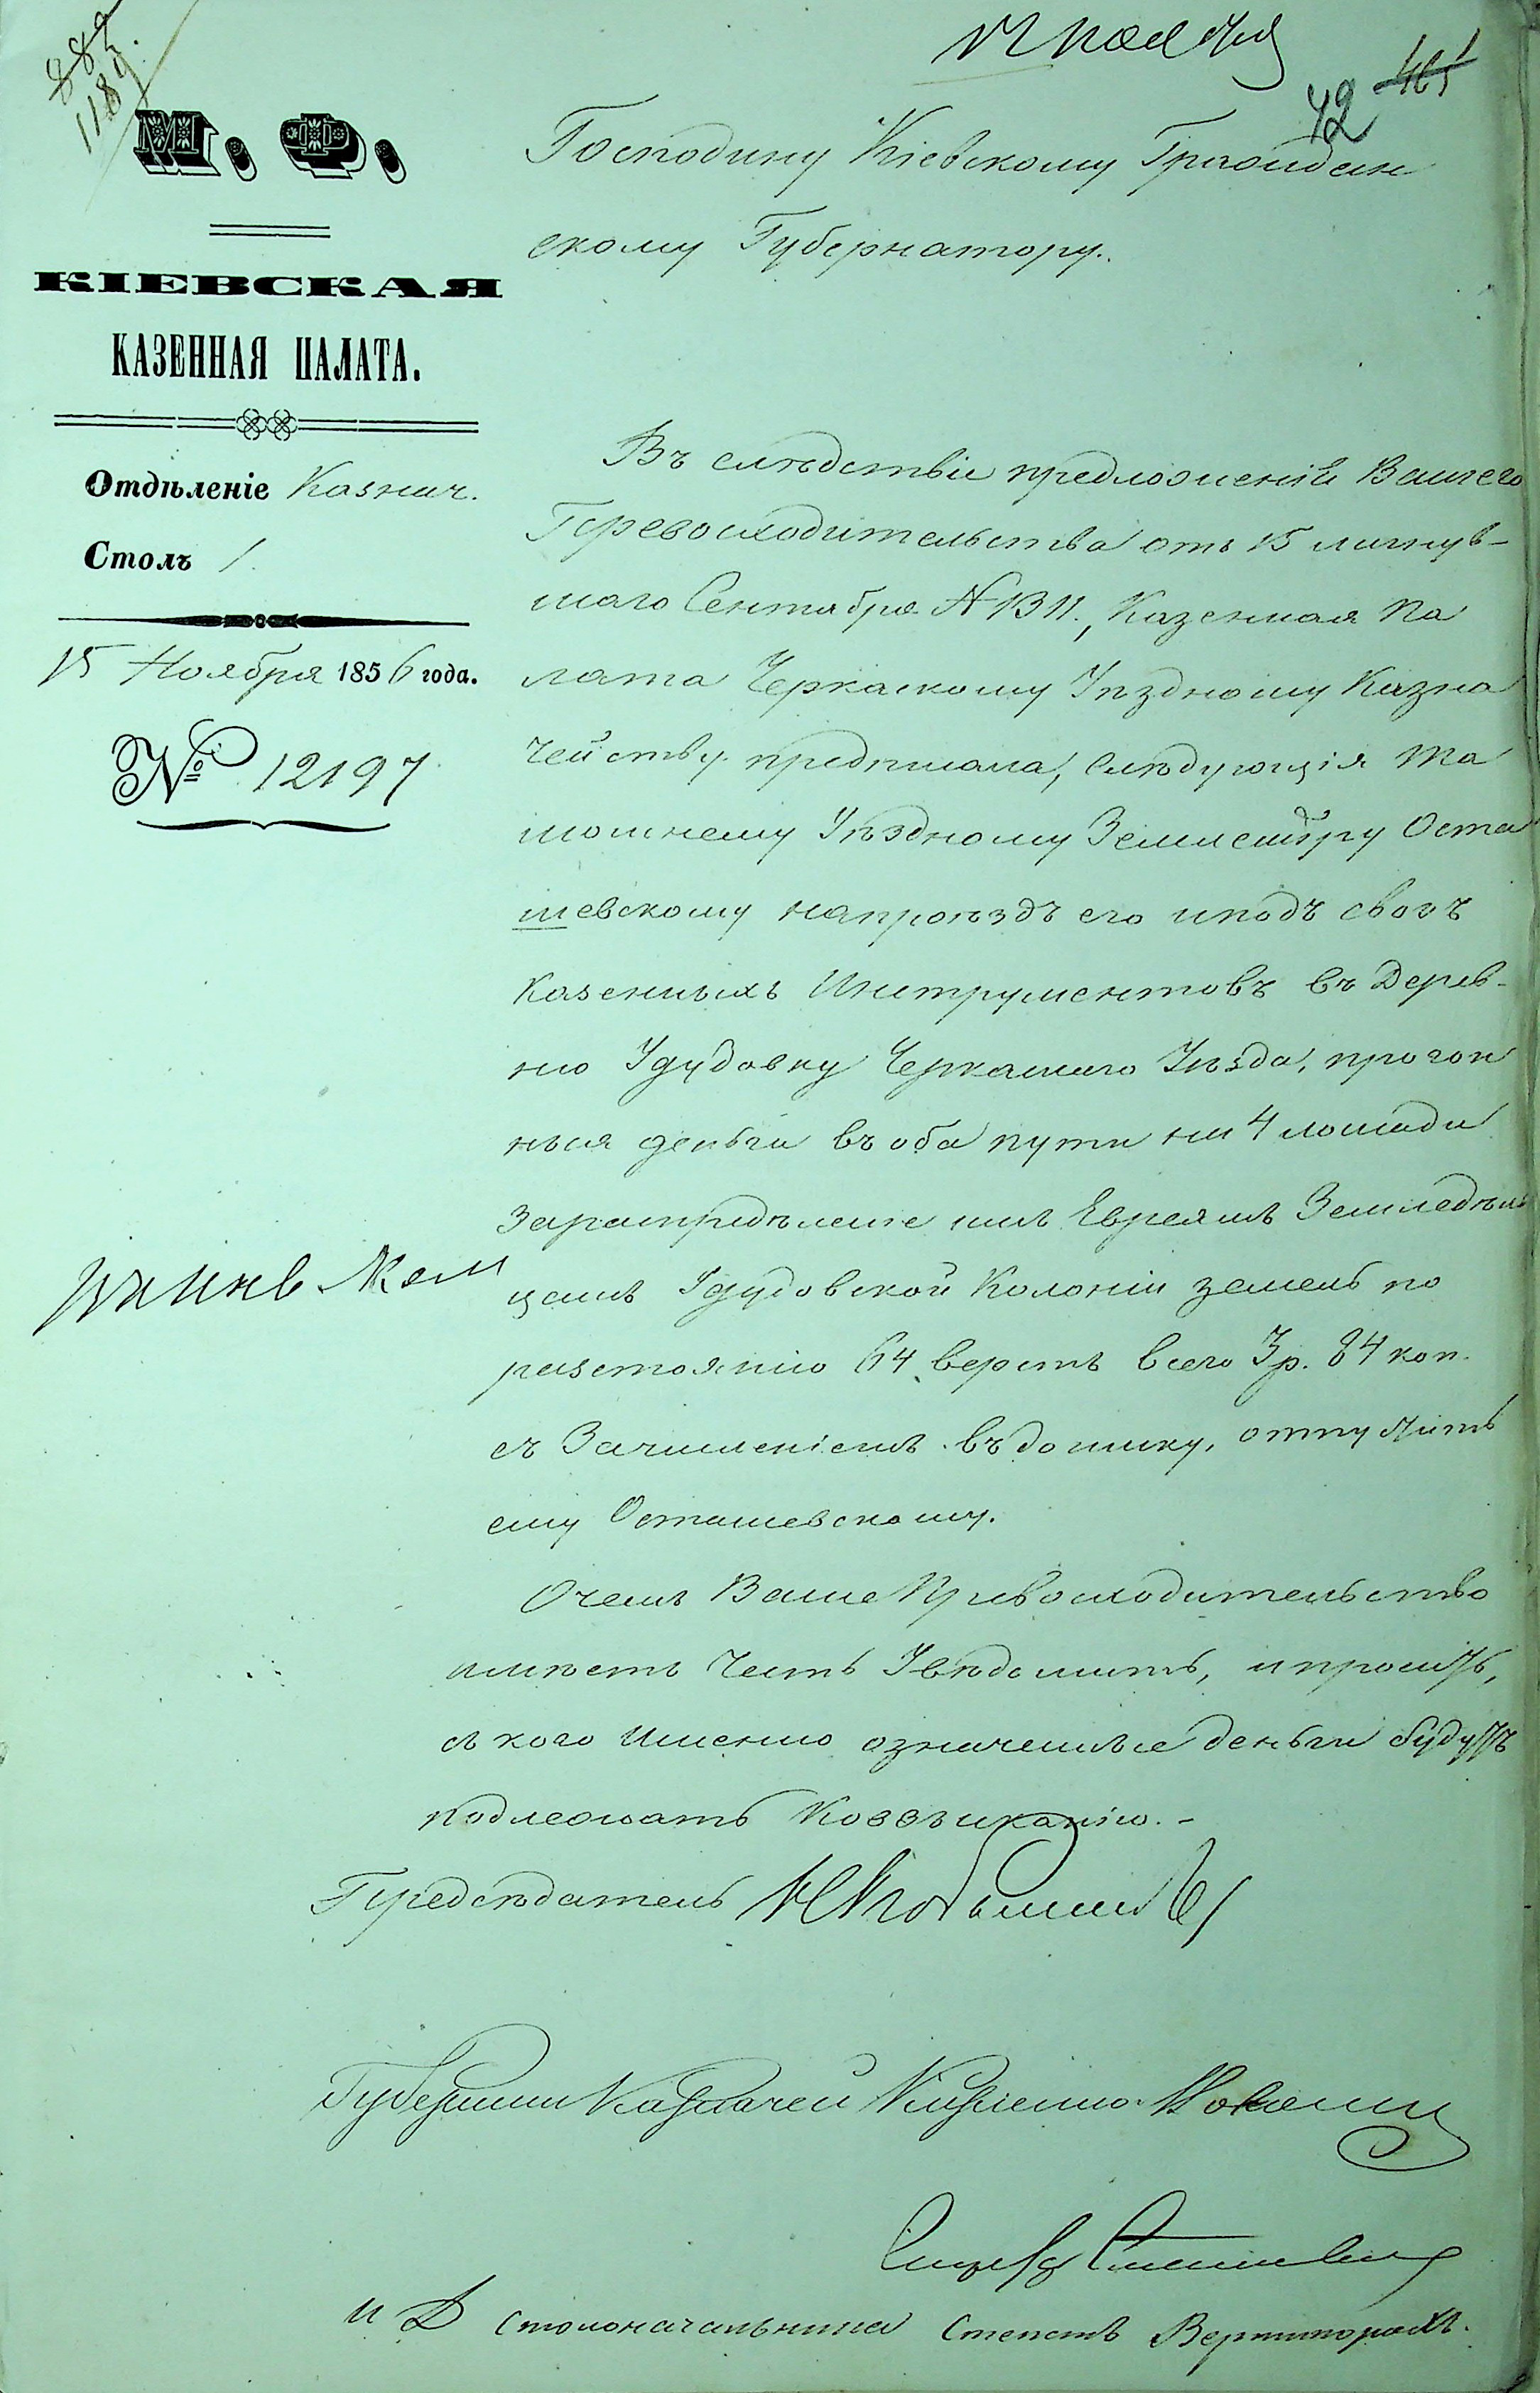 883.
1189.
42
М. Ф.
КІЕВСКАЯ
КАЗЕННАЯ ПАЛАТА.
Отдѣленіе Казнач.
Столъ 1.
15 Ноября 1856 года.
№ 12197
Господину Кіевскому Граждан
скому Губернатору.
Въ слѣдствіе предложенія Вашего
Превосходительства отъ 15 минув-
шаго Сентября N 1311., Казенная Па
лата Черкаскому Уѣздному Казна
чейству предписала, слѣдующія та
мошнему Уѣздному Землемѣру Оста
шевскому напроѣздъ его иподъ свозъ
Казенныхъ Инструментовъ въ Дерев-
ню Удудовку Черкаскаго Уѣзда, прогон
ныя деньги въ оба пути на 4 лошади
зараспредѣленіе имъ Евреямъ Земледѣль
цамъ Удудовской Колоніи земель по
разстоянію 64 верстъ всего 3 р. 84 коп.
съ Зачисленіемъ въдоимку, отпустить
ему Осташевскому.
Очемъ Ваше Превосходительство
имѣетъ Честь Увѣдомить, ипросить,
съ кого Именно означенные деньги будутъ
подлежать Ковзысканію.-
Предсѣдатель
Губернскій Казначей
И Д Столоначальника Степанъ